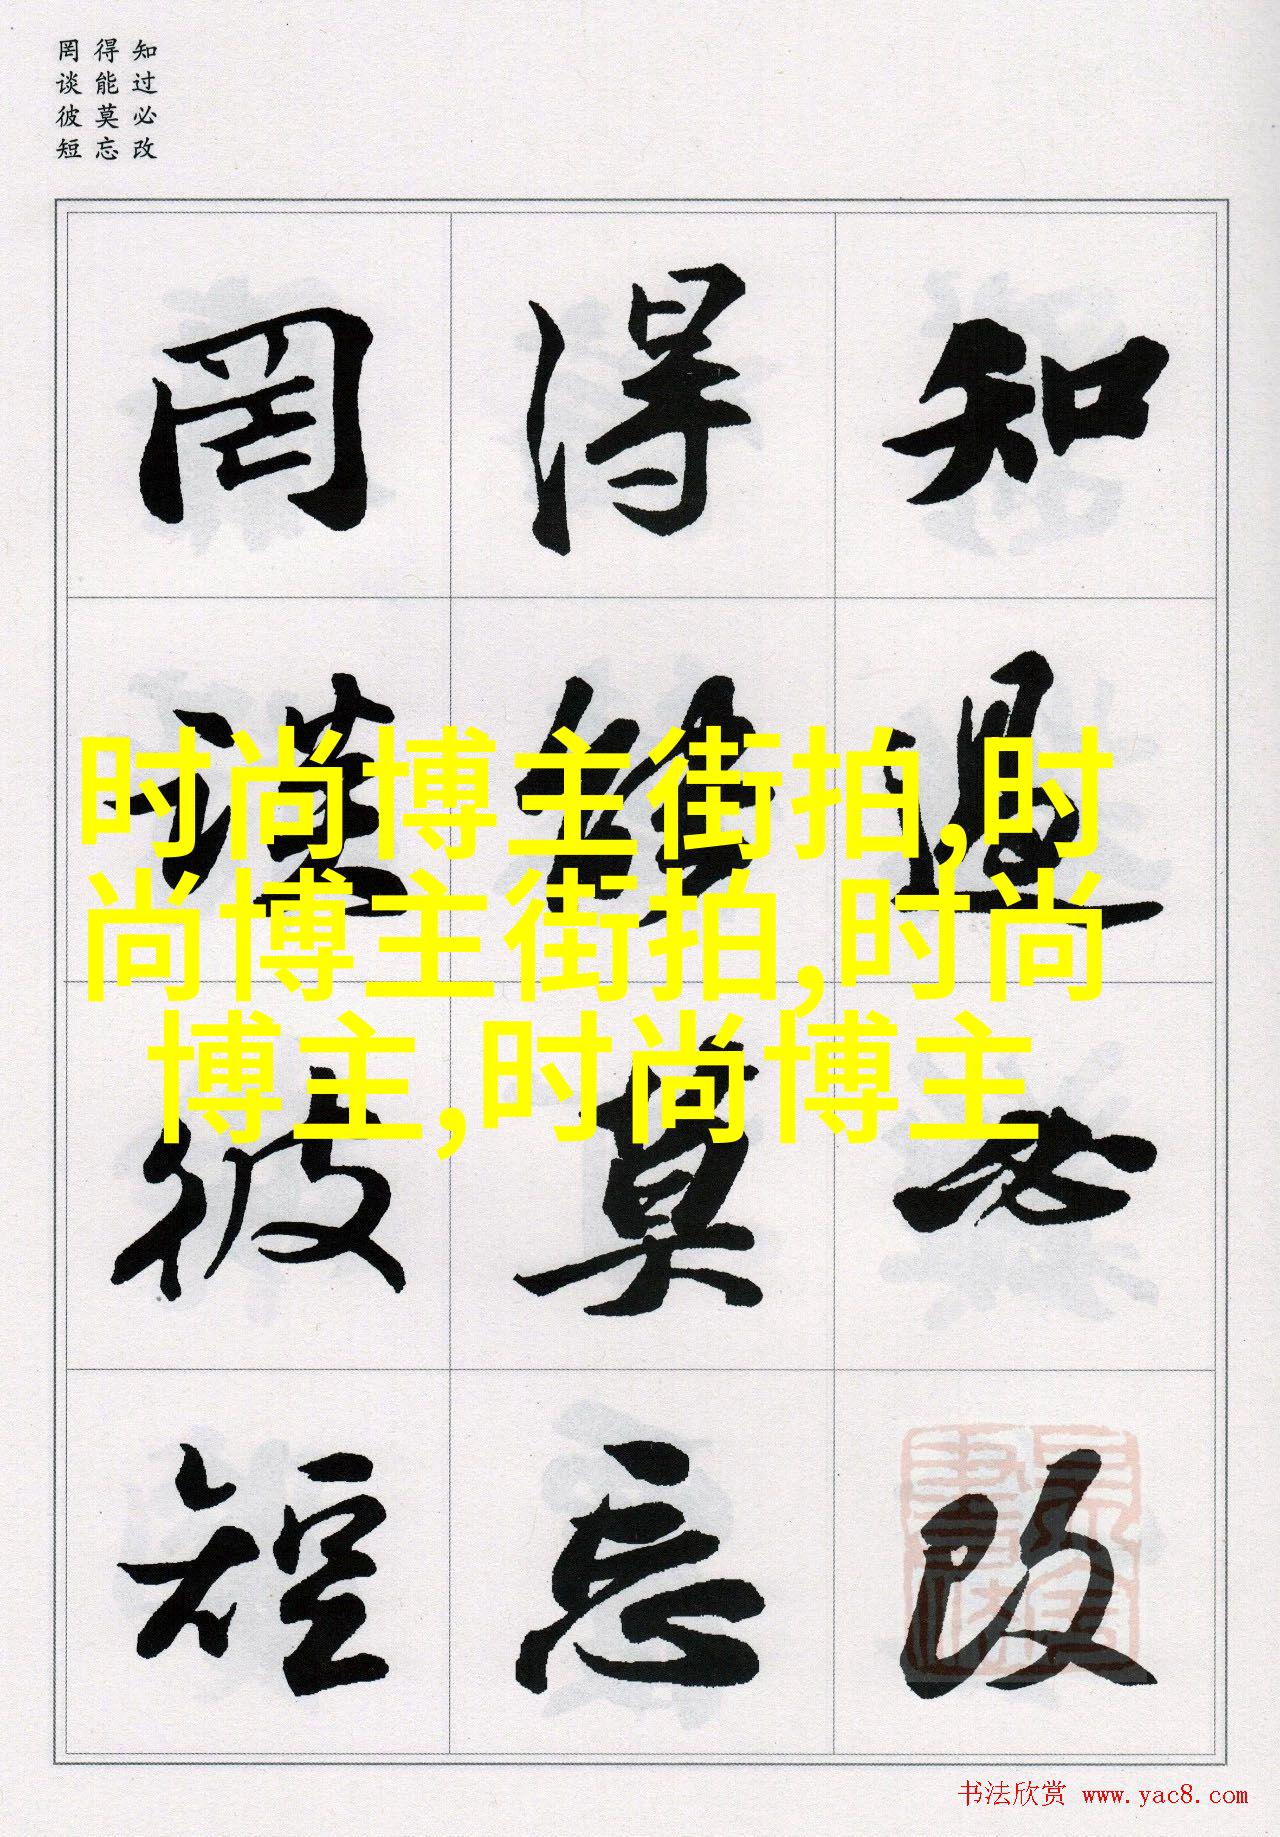 知过必改
得能莫忘
罔谈彼短
知過必改
得能莫忘
罔談彼短
时尚博主街拍,时
尚博主街拍,时尚
博主,时尚博主
书法欣赏 www.yac8.com